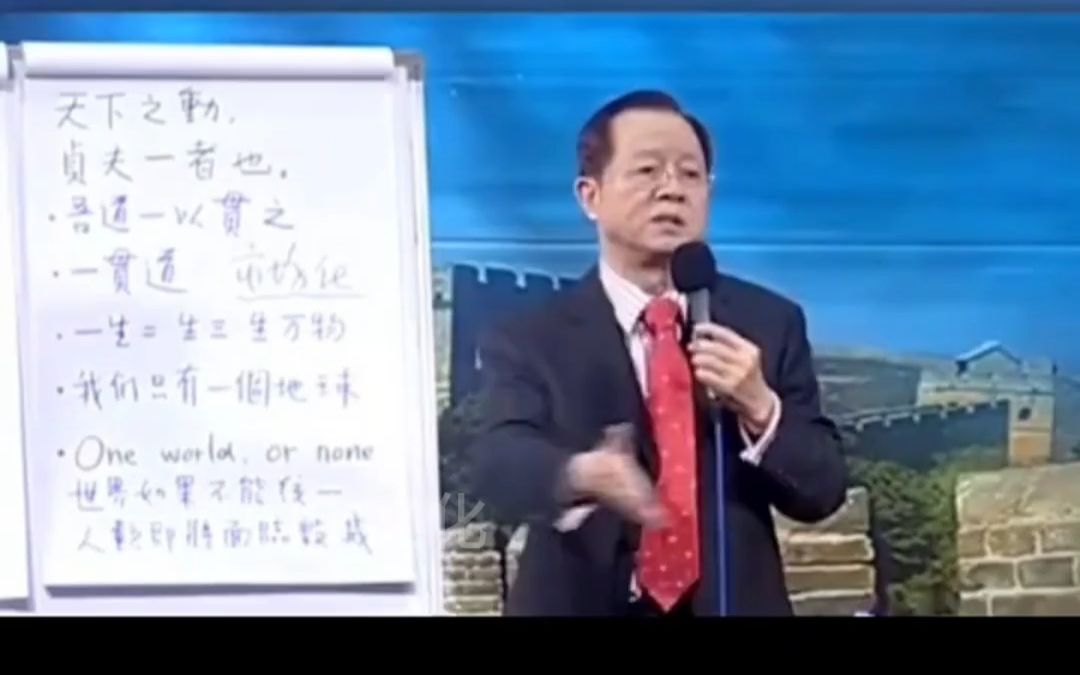 天下之動,
貞夫一者也。
·吾道一以貫之
·一貫道 市场化
·一生二生三生万物
·我们只有一個地球
·One world, or none
世界如果不能統一
人類即將面臨毀滅
化